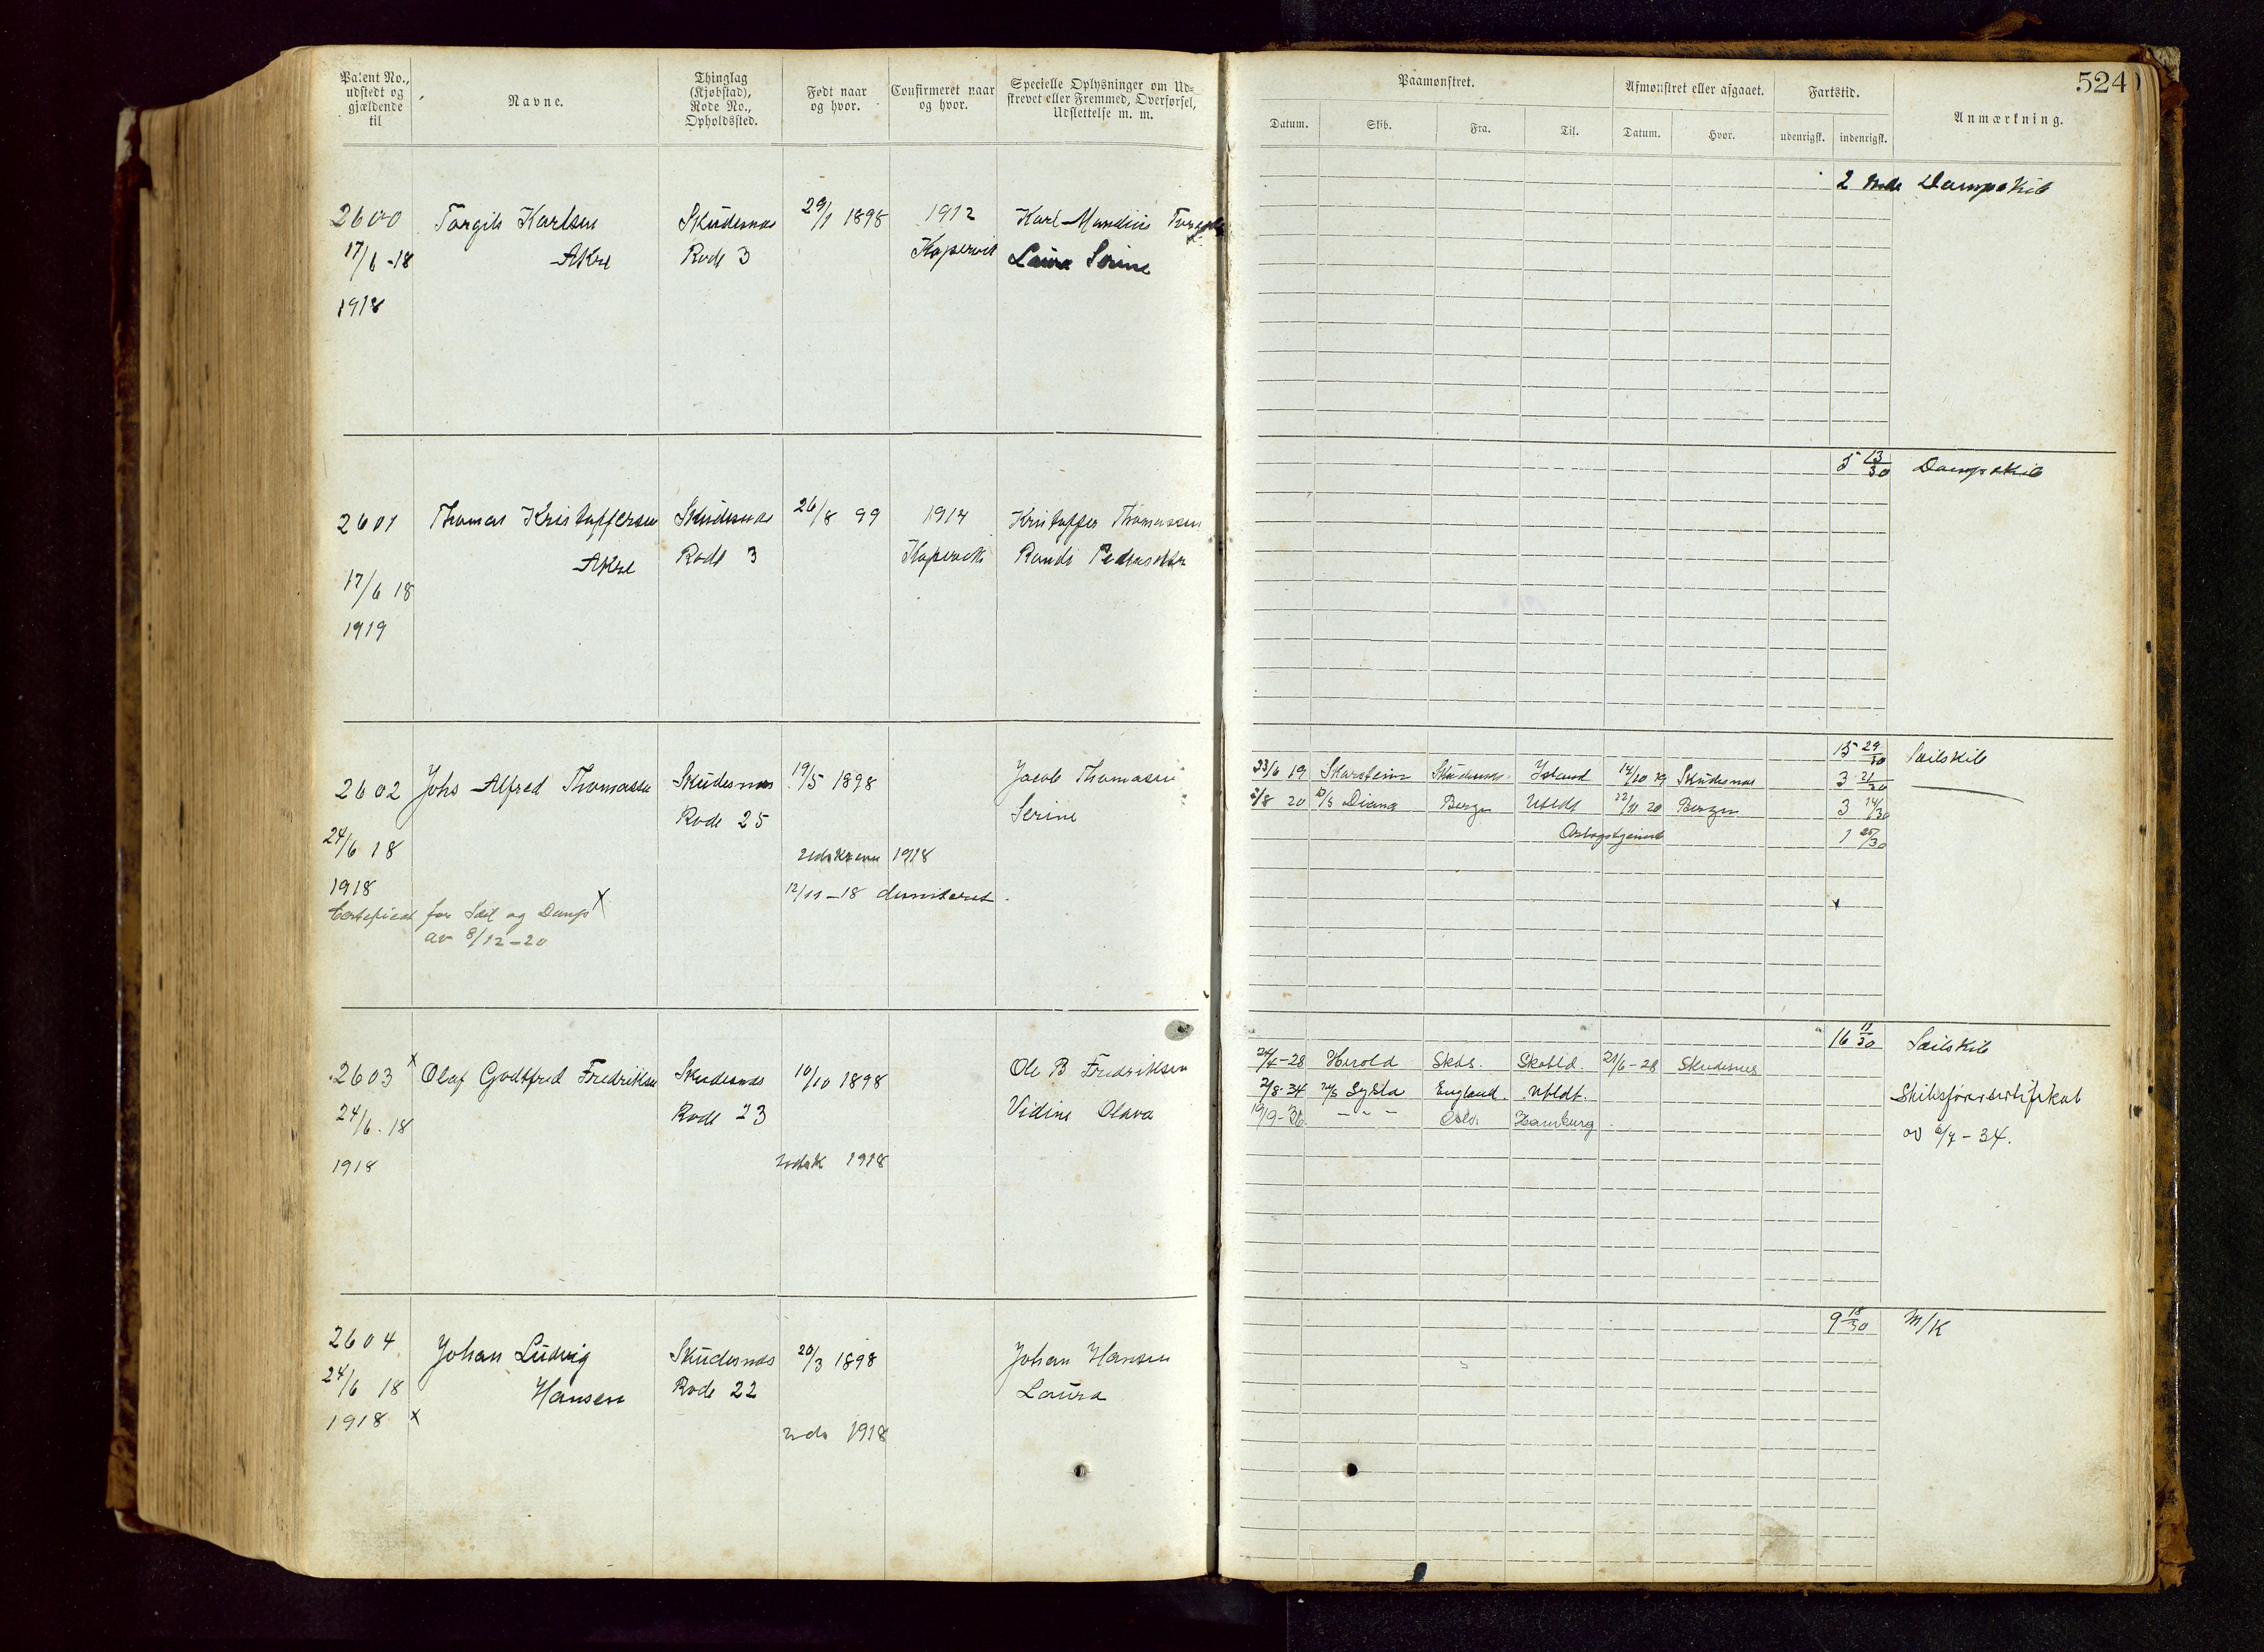 Patent No., udstedt og gjældende til
Navne.
Thinglag (Kjøbstad), Rode No., Opholdssted.
Født naar og hvor.
Confirmeret naar og hvor.
Specielle Oplysninger om Udskrevet eller Fremmed, Overførsel, Udslettelse m. m.
Paamønstret.
Datum.
Skib.
Fra.
Til.
Afmønstret eller afgaaet.
Datum.
Hvor.
Fartstid.
udenrigsk.
indenrigsk.
Anmærkning.
524
2600 Torgils Karlsen Skudesnæs 29/1 1898 1912 Karl Mandius
17/6 -18 Akre Rode 3 Kopervik Laura Serine
1918
2 Mdr Dampskib
2601 Thomas Kristoffersen Skudesnæs 26/8 99 1914 Kristoffer Thomassen
Akre Rode 3 Kopervik Randi
17/6 18
1919
5 13/30 Dampskib
2602 Johs Alfred Thomassen Skudesnæs 19/5 1898 Jacob Thomassen
Rode 25 Serine
24/6 18
1918
1918
12/11-18 dimiteret
Certificat for Seil og Damp X
av 8/12-20
15 29/30 Seilskib
23/6 19 Skarstein Skudesnæs Island 14/10 19 Skudesnæs 3 21/30
2/8 20 D/S Diana Bergen Utldt 22/11 20 Bergen 3 14/30
1 25/30
x
2603 x Olaf Godtfred Fredriksen Skudesnæs 10/10 1898 Ole B Fredriksen
24/6. 18 Rode 23 Vidine Olava
1918 1918
16 11/30 Seilskib
24/4-28 Herold Skds. Skotld. 21/6-28 Skudesnes
2/8-34 England. Utldt.
19/9-36. - " - Oslo. Hamburg.
Skibsførersertifikat
av 6/7-34.
2604 Johan Ludvig Skudesnæs 20/3 1898 Johan Hansen
24/6 18 Hansen Rode 22 Laura
1918 x 1918
9 18/30 M/K